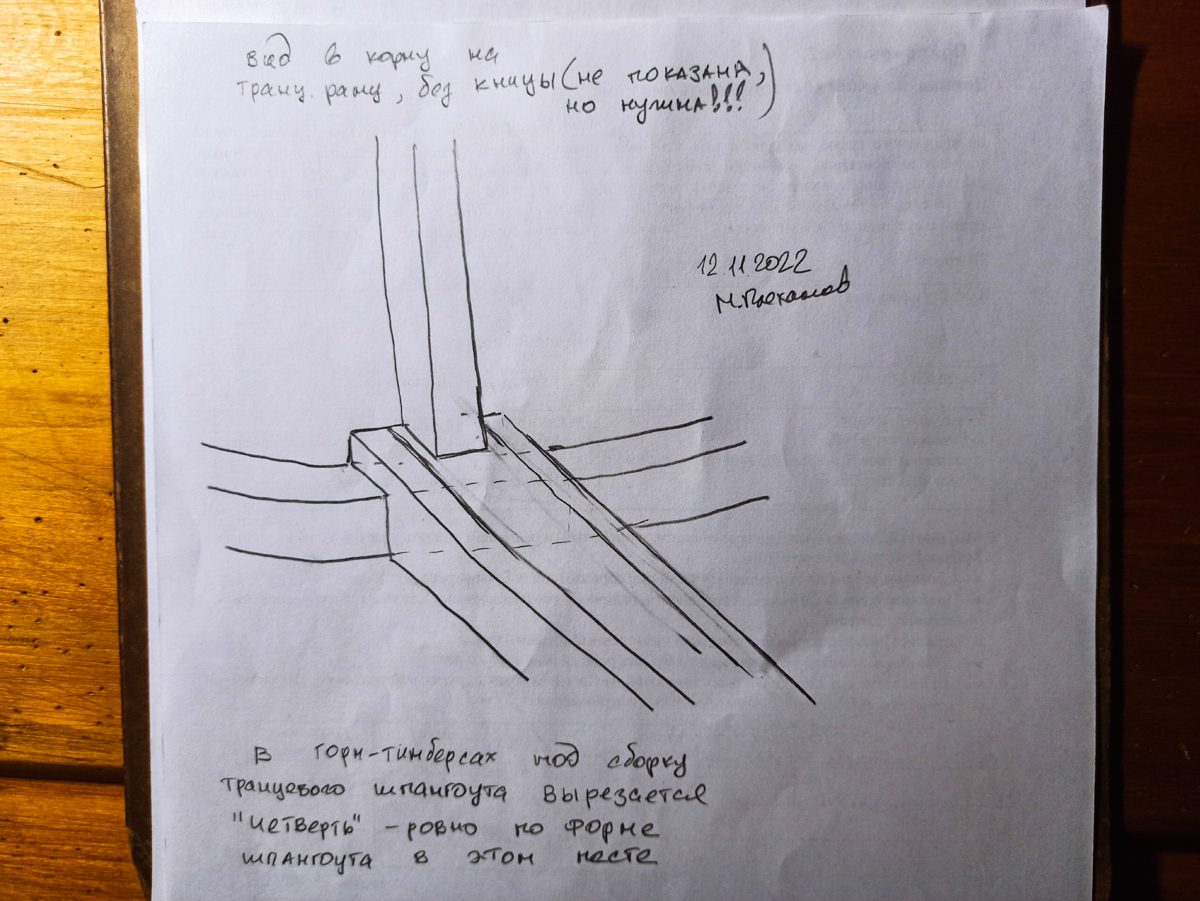 вид в корму на
транц. раму, без кницы (не показана,
но нужна!!!)
12.11.2022
В горн-тимберсах под сборку
транцевого шпангоута вырезается
"четверть" - ровно по форме
шпангоута в этом месте